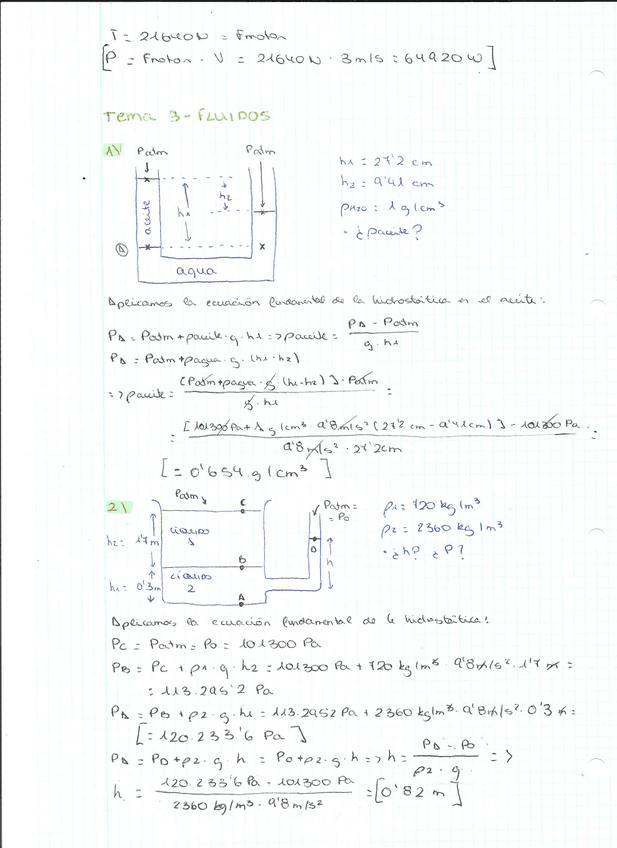 T = 21640N = Fmotor
[P = Fmotor · V = 21640N · 3m/s = 64920W]
Tema 3 - FLUIDOS
1\
Patm
Patm
h1 = 27'2 cm
h2 = 9'41 cm
ρH2O = 1 g/cm³
· ¿ρaceite?
h2
h1
aceite
A
agua
Aplicamos la ecuación fundamental de la hidrostática en el aceite:
PA = Patm + ρaceite · g · h1 => ρaceite = PA - Patm / g · h1
PA = Patm + ρagua · g · (h1 - h2)
=> ρaceite = [Patm + ρagua · g · (h1 - h2)] - Patm / g · h1 =
= [101300Pa + 1 g/cm³ · 9'8m/s² (27'2 cm - 9'41cm)] - 101300 Pa / 9'8m/s² · 27'2cm =
[= 0'654 g/cm³]
2\
Patm
C
Patm =
= P0
ρ1 = 720 kg/m³
ρ2 = 2360 kg/m³
· ¿h? ¿P?
h2 = 1'7m
LÍQUIDO
1
D
h
B
h1 = 0'3m
LÍQUIDO
2
A
Aplicamos la ecuación fundamental de la hidrostática:
PC = Patm = P0 = 101300 Pa
PB = PC + ρ1 · g · h2 = 101300 Pa + 720 kg/m³ · 9'8m/s² · 1'7 m =
= 113.295'2 Pa
PA = PB + ρ2 · g · h1 = 113.2952 Pa + 2360 kg/m³ · 9'8m/s² · 0'3 m =
[= 120.233'6 Pa]
PA = PD + ρ2 · g · h = P0 + ρ2 · g · h => h = PA - P0 / ρ2 · g =>
h = 120.233'6 Pa - 101300 Pa / 2360 kg/m³ · 9'8m/s² = [0'82 m]